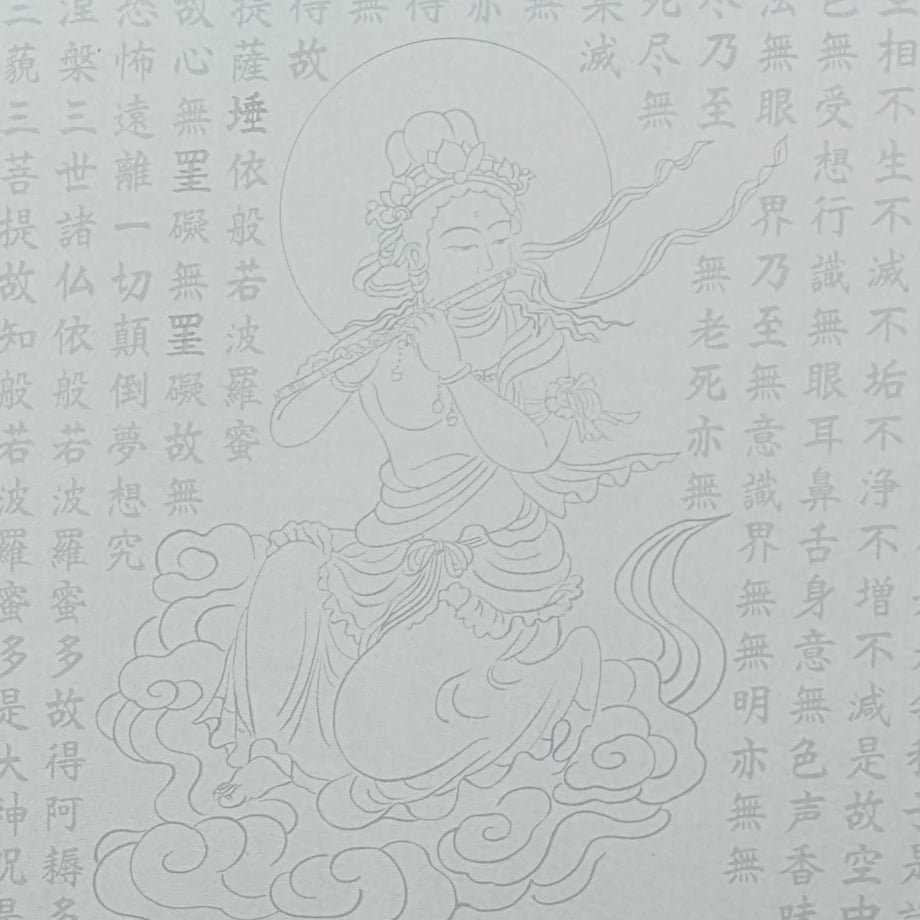 相不生不滅不垢不浄不増不減是故空中
色無受想行識無眼耳鼻舌身意無色声香味
法無眼界乃至無意識界無無明亦無無
尽乃至無老死亦無
死尽無
集滅
無
亦
得
無
得故
提薩埵依般若波羅蜜
故心無罣礙無罣礙故無
恐怖遠離一切顛倒夢想究
涅槃三世諸仏依般若波羅蜜多故得阿耨多
三藐三菩提故知般若波羅蜜多是大神呪是